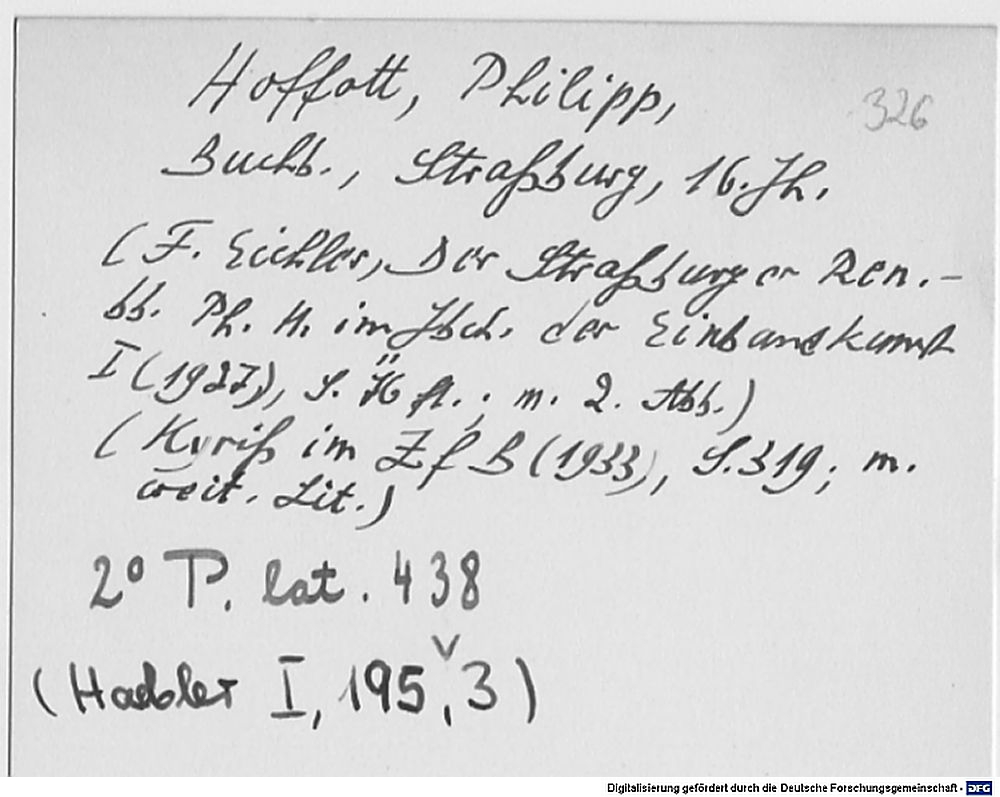 Hoffott, Philipp,
326
Buchb., Straßburg, 16. Jh.
(F. Eichler, Der Straßburger Ren.-
bb. Ph. H. im Jbch. der Einbandkunst
I (1927), S. ff.; m. 2. Abb.)
(Kyriß im ZfB (1933), S. 319; m.
weit. Lit.)
2° P. lat. 438
(Haebler I, 195, 3)
Digitalisierung gefördert durch die Deutsche Forschungsgemeinschaft - DFG